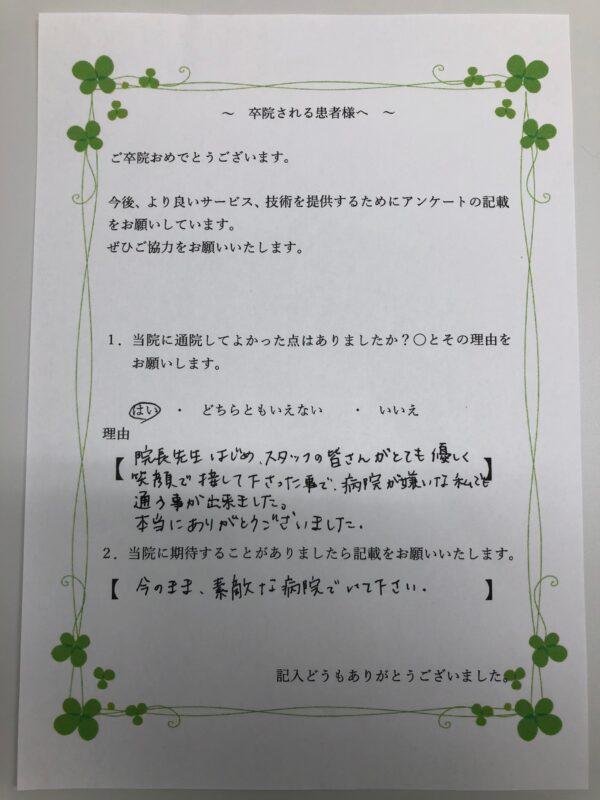 ～ 卒院される患者様へ ～
ご卒院おめでとうございます。
今後、より良いサービス、技術を提供するためにアンケートの記載
をお願いしています。
ぜひご協力をお願いいたします。
1．当院に通院してよかった点はありましたか？〇とその理由を
お願いします。
はい ・ どちらともいえない ・ いいえ
理由
【院長先生はじめ、スタッフの皆さんがとても優しく
笑顔で接して下さった事で、病院が嫌いな私でも】
通う事が出来ました。
本当にありがとうございました.
2．当院に期待することがありましたら記載をお願いいたします。
【今のまま、素敵な病院でいて下さい.】
記入どうもありがとうございました。